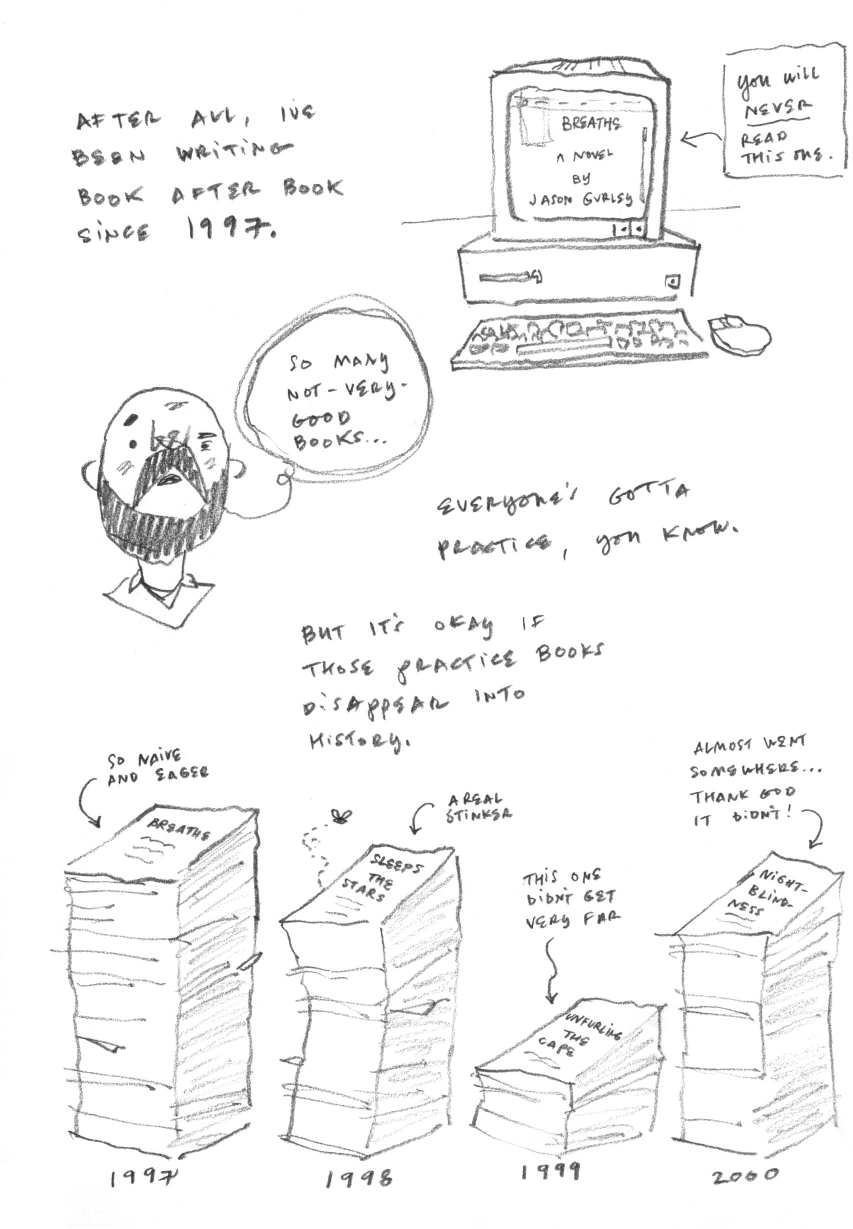 AFTER ALL, I'VE
BEEN WRITING
BOOK AFTER BOOK
SINCE 1997.
BREATHE
A NOVEL
BY
JASON GURLEY
YOU WILL
NEVER
READ
THIS ONE.
SO MANY
NOT-VERY-
GOOD
BOOKS...
EVERYONE'S GOTTA
PRACTICE, YOU KNOW.
BUT IT'S OKAY IF
THOSE PRACTICE BOOKS
DISAPPEAR INTO
HISTORY.
SO NAIVE
AND EAGER
BREATHE
1997
A REAL
STINKER
SLEEPS
THE
STARS
1998
THIS ONE
DIDN'T GET
VERY FAR
UNFURLING
THE
CAPE
1999
ALMOST WENT
SOMEWHERE...
THANK GOD
IT DIDN'T!
NIGHT-
BLIND-
NESS
2000